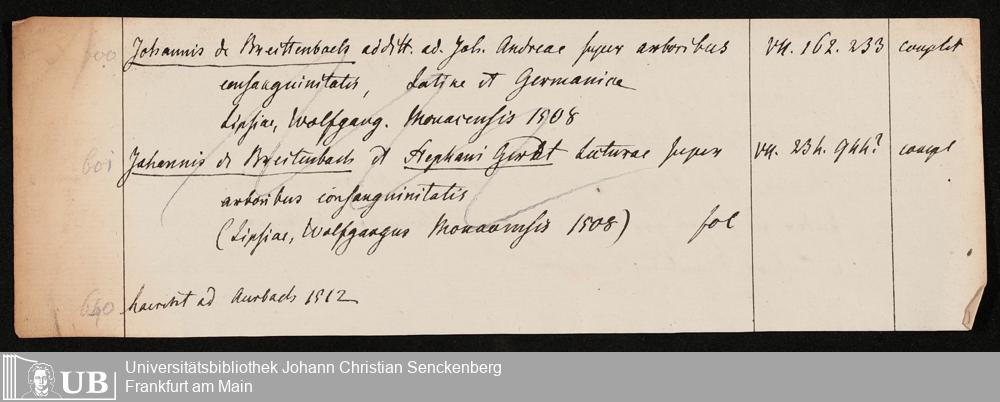 600 Johannis de Breittenbach additt. ad. Joh. Andreae super arboribus VII. 162. 233 complet
consanguinitatis, Latine et Germanice
Lipsiae, Wolfgang. Monacensis 1508
601 Johannis de Breitenbach et Stephani Gerdt Lecturae super VII. 234. 944? compl
arboribus consanguinitatis
(Lipsiae, Wolfgangus Monacensis 1508) fol
640 haeret ad Aurbach 1512
UB
Universitätsbibliothek Johann Christian Senckenberg
Frankfurt am Main